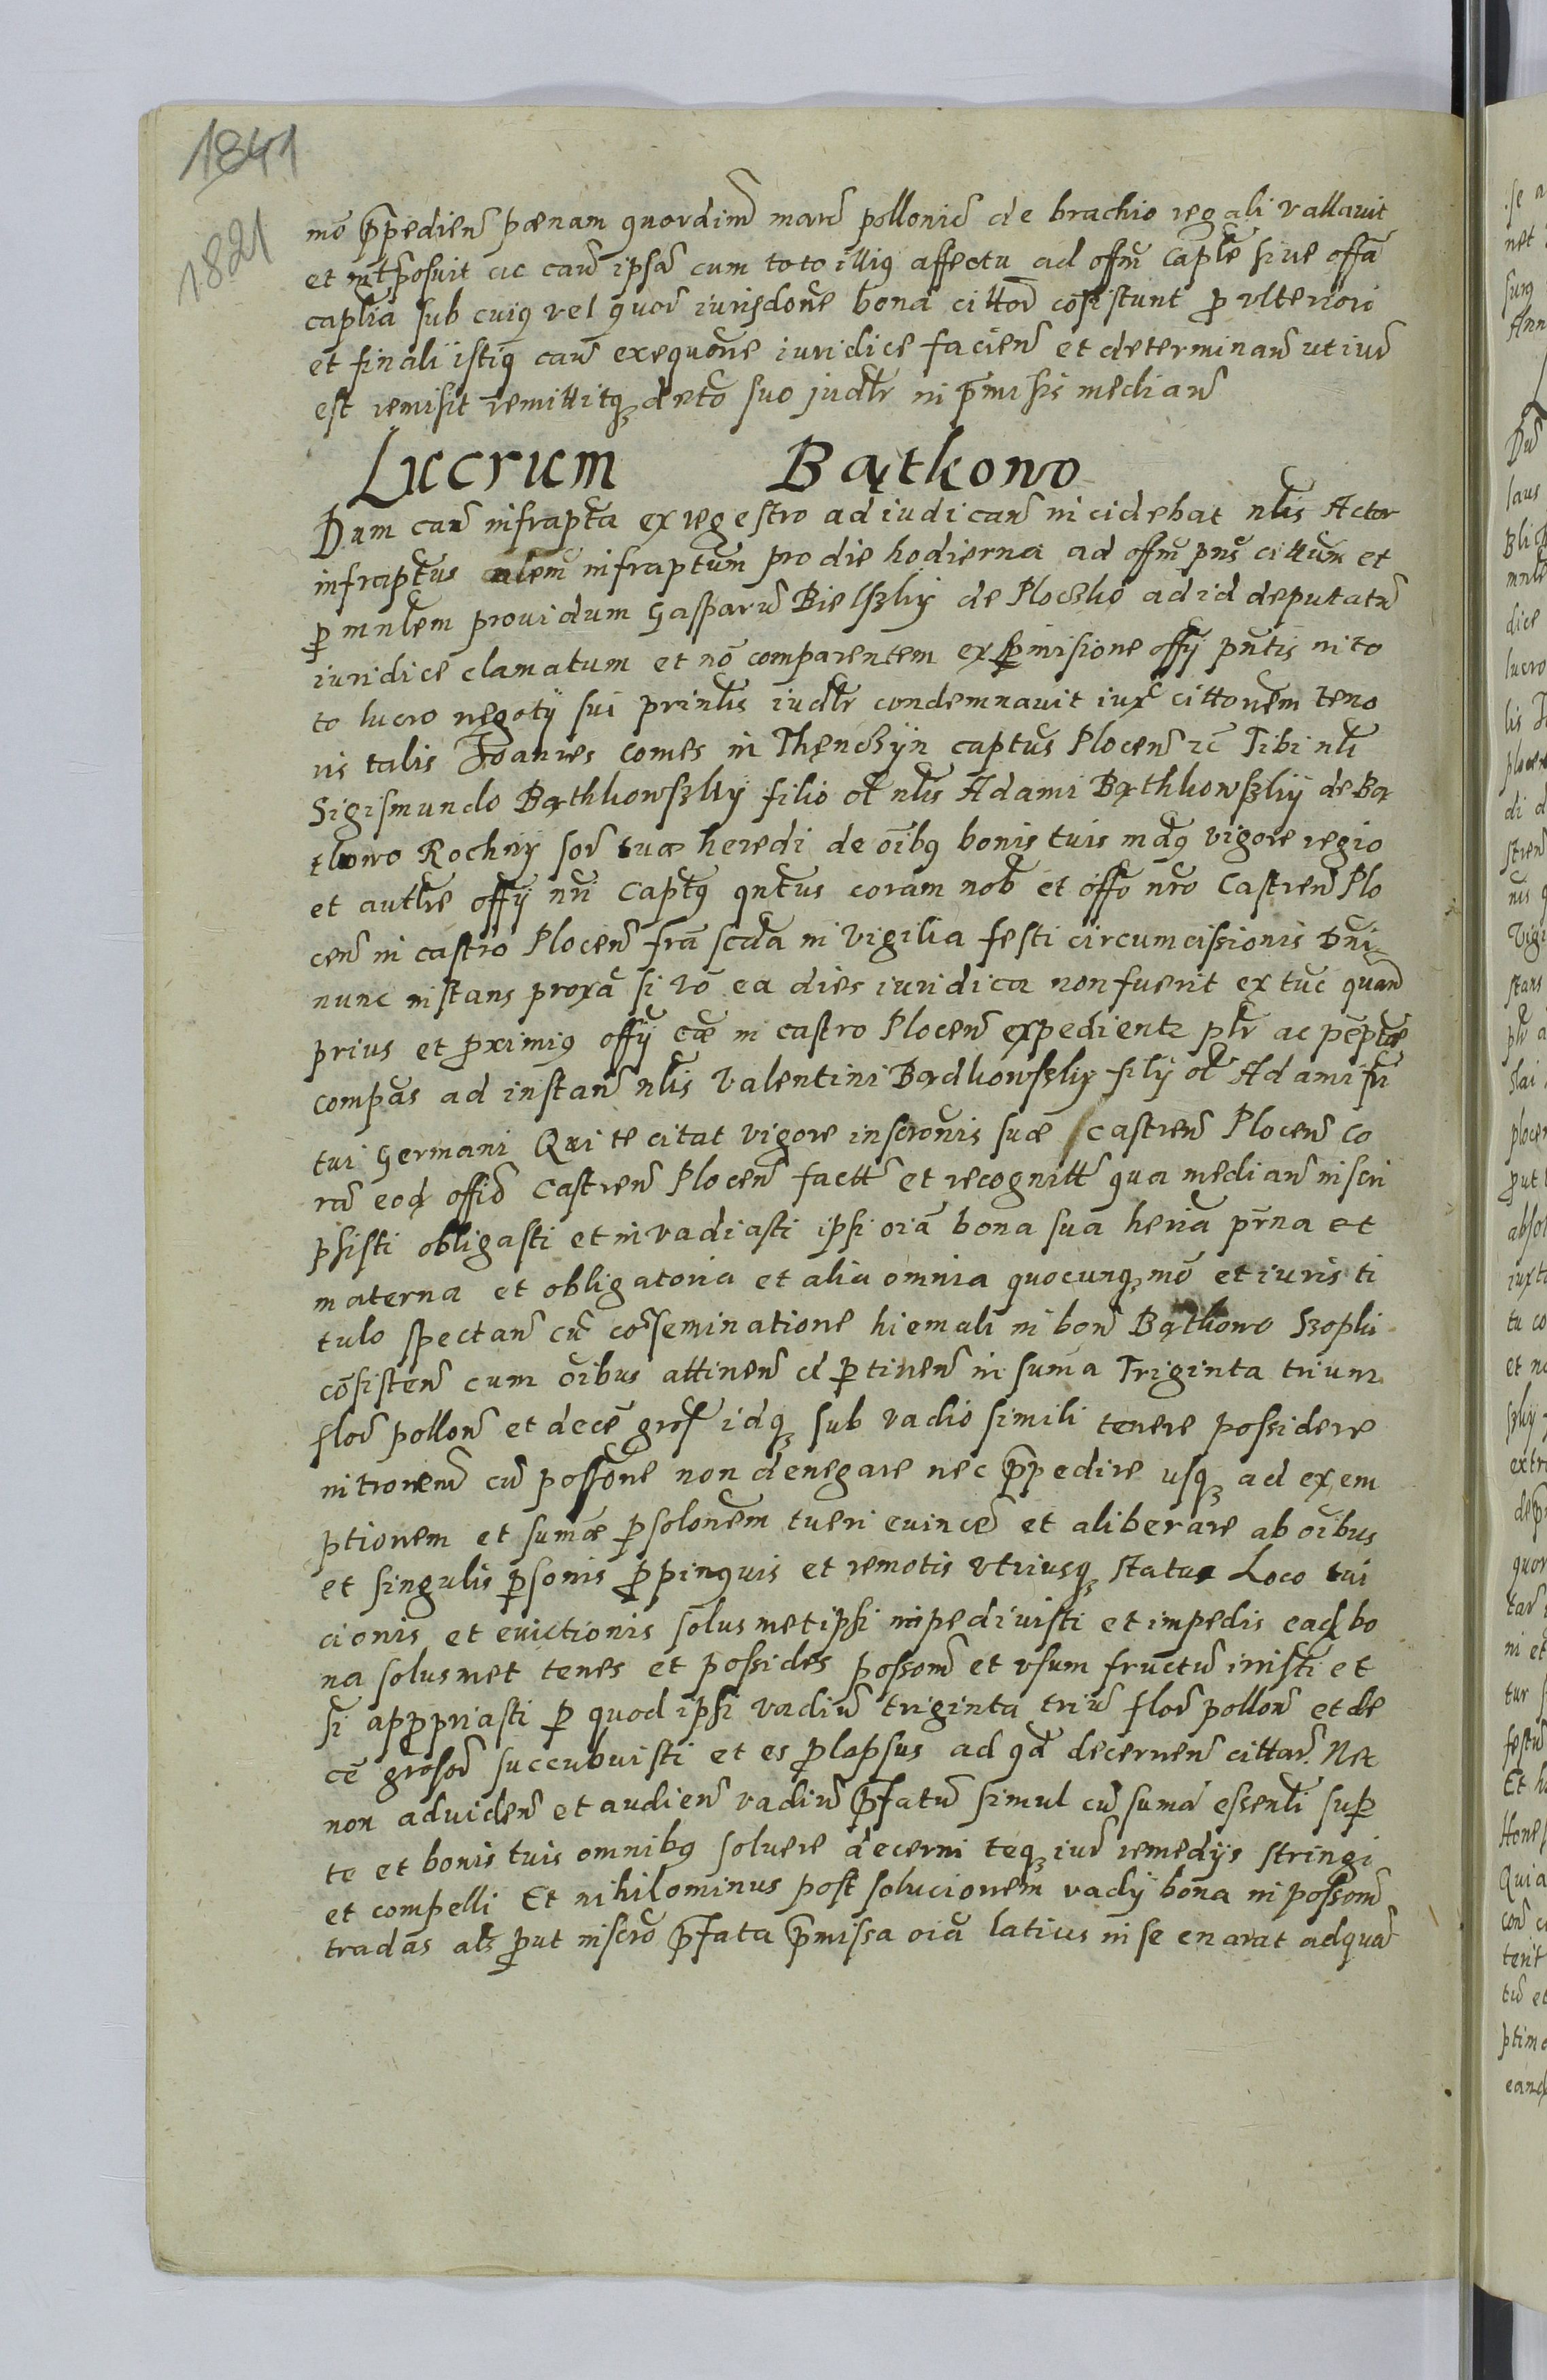 1841
1821
mō p̄pedień pœnam quordim marć pollonić de brachio regali vallavit
et int̄posuit ac cań ipsā cum toto illiq affectu ad offm captle sive offā
captlia sub cuiq vel quorum iurisdone bona cittor cōsistunt p ulteriori
et finali istiq cań exequone iuridice facień et determinań ut iur
est remisit remittitq deto suo judtr in p̄missis mediań
Lucrum Bątkowo
Dum cań infrapta ex regestro ad iudicań incidebat nlis Actor
infraptus alem infraptum pro die hodierna ad offm pns cittum et
p mnlem providum Gasparū Bielszkij de Ploczko ad id deputatū
iuridice clamatum et nō comparentem ex p̱misione offy pntis in to
to lucro negoty sui prinlis iudlr condemnavit iux cittonem teno
ris talis Joannes comes in Thęnczyn captus Plocen̄ rc̄ Tibi nli
Sigismundo Bąthkowszkij filio ol nlis Adami Bąthkowszkij de Bą
tkowo Rochny sor tuæ heredi de oib bonis tuis mdq vigore regio
et authe offy nri captq qntus coram nob et offo nro Castren̄ Plo
cen̄ in castro Plocen̄ fra scda in vigilia festi circumcissionis Dni
nunc instans proxa si vō ea dies iuridica non fuerit ex tuc quan̄
prius et p̱ximiq offy cæ in castro Plocen̄ expedientr pltr ac peptæ
compas ad instan̄ nlis Valentini Bądkowszkij fily ol Adami fri
tui Germani Qui te citat vigore inscronis suæ castren̄ Plocen̄ co
rā eod offio Castren̄ Plocen̄ factæ et recognittæ qua median̄ inscri
psisti obligasti et invadiasti ipsi oia bona sua heria prna et
materna et obligatoria et alia omnia quocunq mō et iuris ti
tulo spectan̄ cū conseminatione hiemali in bon̄ Bątkowo Szopki
cōsisten̄ cum oibus attinen̄ et p̱tinen̄ in suma Triginta trium
flor̄ pollon̄ et decē gross idq sub vadio simili tenere possidere
intronem cū possone non denegare nec p̄pedire usq ad exem
ptionem et sumæ p̱solonem tueri evince et aliberare ab oibus
et singulis p̱sonis p̱pinquis et remotis utriusq status Loco tui
cionis et evictionis solusmet ipsi inpedivisti et impedis ead bo
na solusmet tenes et possides possom et usum fructū inisti et
si app̱priasti p̱ quod ipsi vadiū triginta triū flor̄ pollon̄ et de
cē grosor succubuisti et es p̱lapsus ad qd decernen̄ cittar. Nec
non ad viden̄ et audien̄ vadiū p̄fatū simul cū suma essenli sup̱
te et bonis tuis omnibq solvere decerni teq iur remedijs stringi
et compelli Et nihilominus post solucionem vadij bona in possom
tradas als p̱ut inscro p̄fata p̄missa oia latius in se enarat ad quā